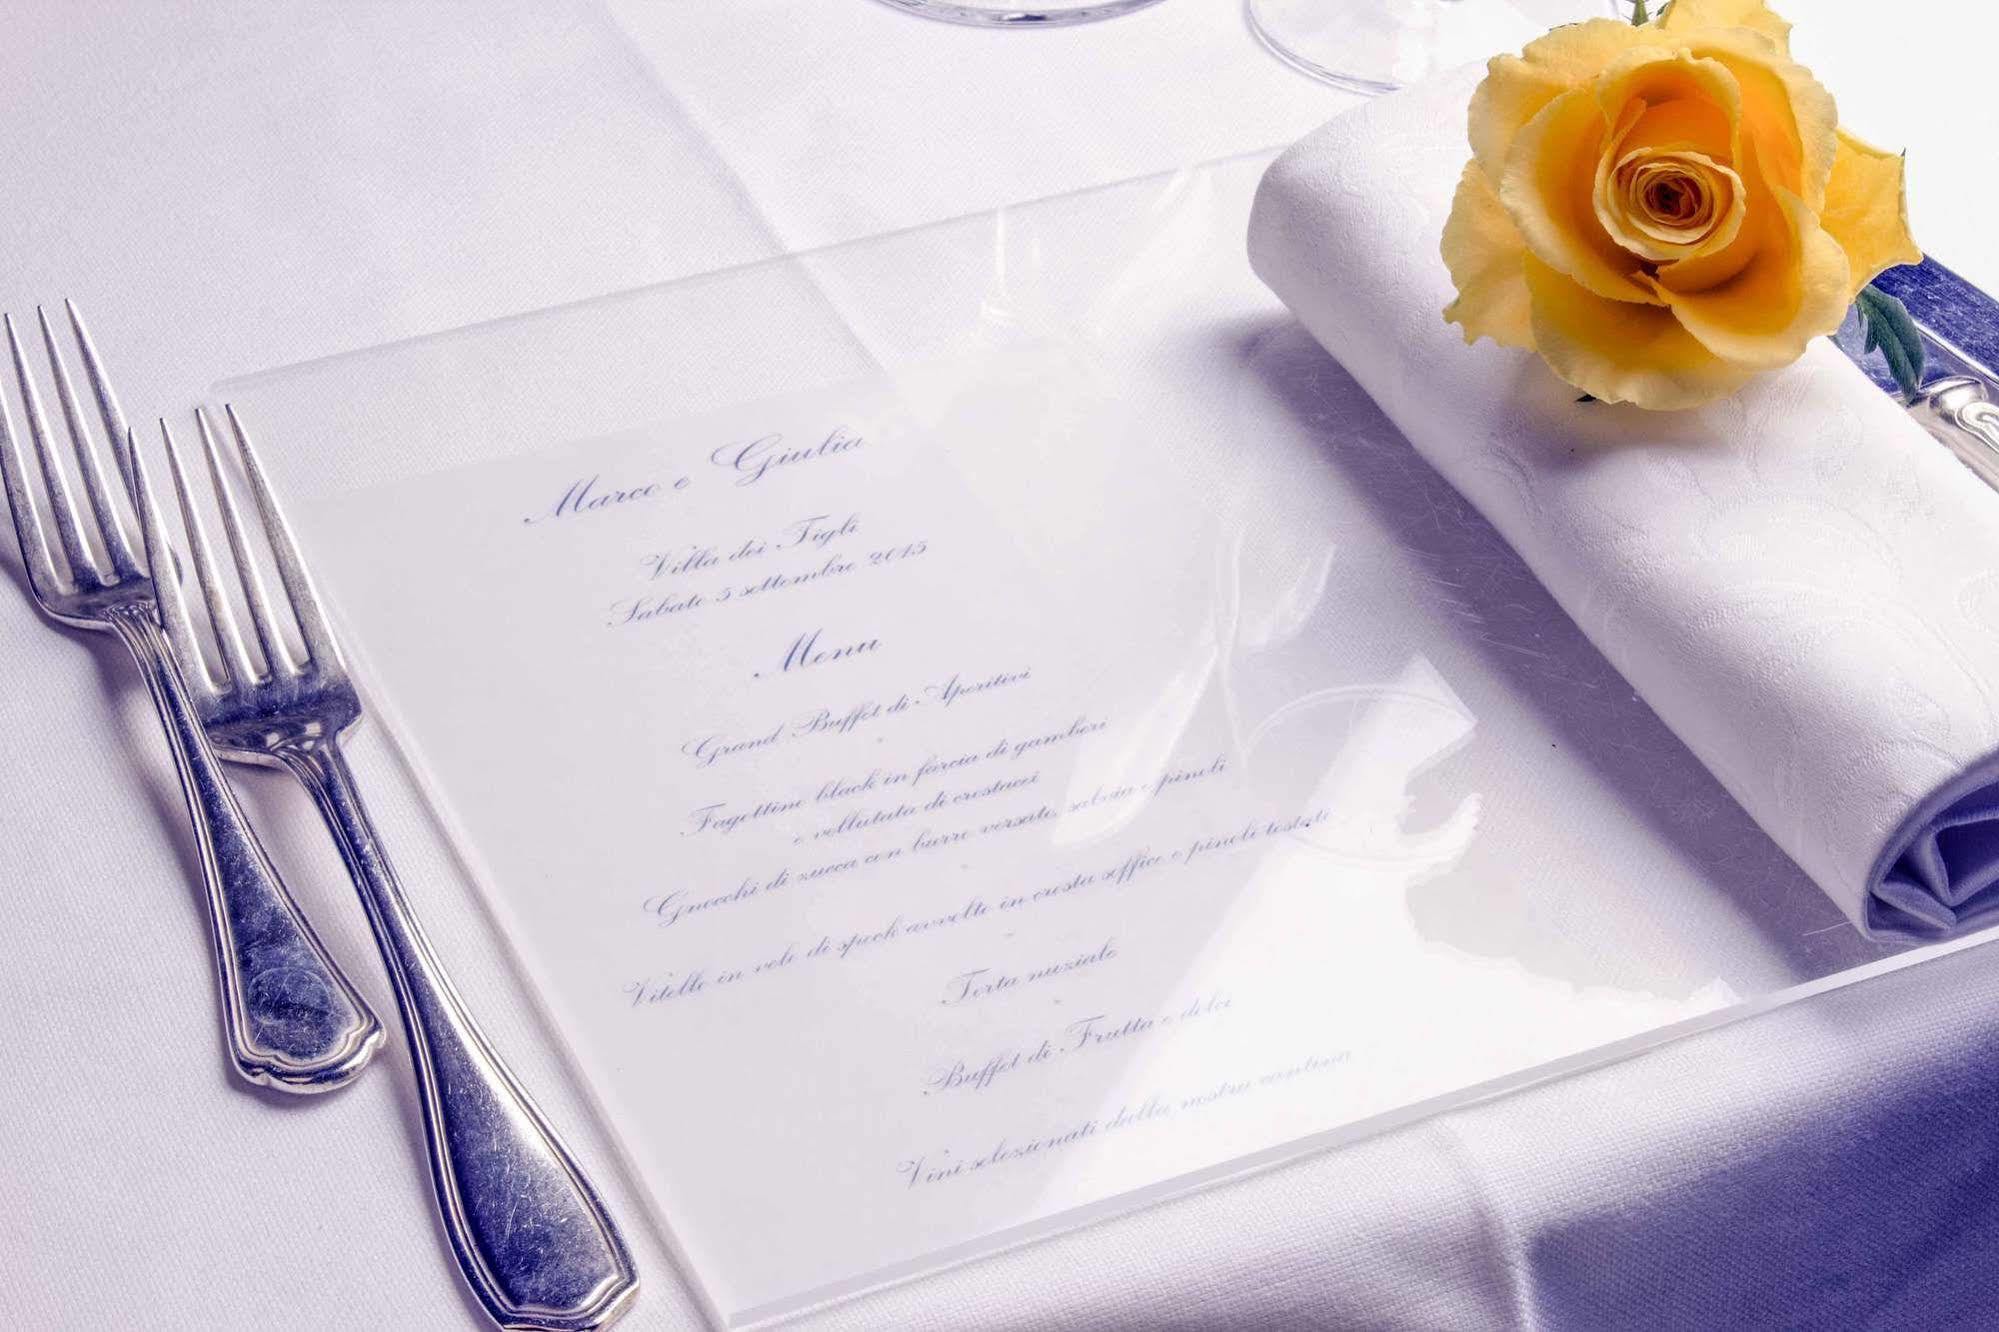 Marco e Giulia
Villa dei Tigli
Sabato 5 settembre 2015
Menu
Grand Buffet di Aperitivi
Fagottino black in farcia di gamberi
e vellutata di crostacei
Gnocchi di zucca con burro versato, salvia e pinoli
Vitello in velo di speck avvolto in crosta soffice e pinoli tostati
Torta nuziale
Buffet di Frutta e dolci
Vini selezionati dalla nostra cantina